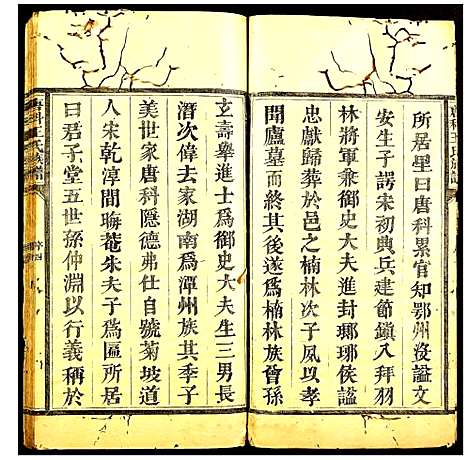 所居里曰唐科累官知鄂州沒謚文
安生子諤宋初典兵建節鎮入拜羽
林將軍兼御史大夫進封瑯琊侯謚
忠獻歸葬於邑之楠林次子夙以孝
聞廬墓而終其後遂爲楠林族曾孫
玄壽舉進士爲御史大夫生三男長
潛次偉去家湖南爲潭州族其季子
美世家唐科隱德弗仕自號菊坡道
人宋乾淳間晦菴朱夫子爲區所居
曰君子堂五世孫仲淵以行義稱於
唐科王氏族譜